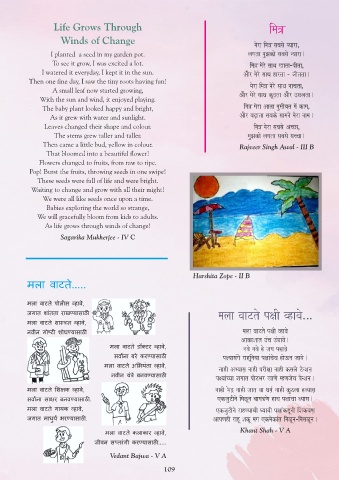 Life Grows Through
Winds of Change
I planted a seed in my garden pot.
To see it grow, I was excited a lot.
I watered it everyday, I kept it in the sun.
Then one fine day, I saw the tiny roots having fun!
A small leaf now started growing,
With the sun and wind, it enjoyed playing.
The baby plant looked happy and bright,
As it grew with water and sunlight.
Leaves changed their shape and colour.
The stems grew taller and taller.
Then came a little bud, yellow in colour.
That bloomed into a beautiful flower!
Flowers changed to fruits, from raw to ripe.
Pop! Burst the fruits, throwing seeds in one swipe!
These seeds were full of life and were bright.
Waiting to change and grow with all their might!
We were all like seeds once upon a time.
Babies exploring the world so strange,
We will gracefully bloom from kids to adults.
As life grows through winds of change!
Sagarika Mukherjee - IV C
मित्र
मेरा मित्र सबसे प्यारा,
लगता मुझको सबसे न्यारा।
मित्र मेरे साथ
और मेरे साथ हारता - जीतता।
मेरा मित्र मेरे साथ नाचता,
और मेरे साथ कूदता और उछलता।
मित्र मेरा आता मुसीबत में काम,
और बढ़ाता सबके सामने मेरा नाम।
मेरा मित्र सबसे अच्छा,
मुझको लगता सबसे सच्चा।
Rajveer Singh Awal - III B
Harshita Zope - II B
मला वाटते.....
मला वाटते पोलीस व्हावे,
जगात शांतता राखण्यासाठी
मला वाटते शास्त्रज्ञ व्हावे,
नवीन गोष्टी शोधण्यासाठी
मला वाटते डॉक्टर व्हावे,
सर्वांना बरे करण्यासाठी
मला वाटते अभियंता व्हावे,
नवीन यंत्रे बनवण्यासाठी
मला वाटते शिक्षक व्हावे,
सर्वांना साक्षर बनवण्यासाठी.
मला वाटते गायक व्हावे,
जगात माधुर्य भरण्यासाठी.
मला वाटते कलाकार व्हावे,
जीवन सप्तरंगी करण्यासाठी...
Vedant Bajwa - V A
मला वाटते पक्षी व्हावे...
मला वाटते पक्षी व्हावे
आकाशात उंच उडावे।
Khani Shah - V A
109